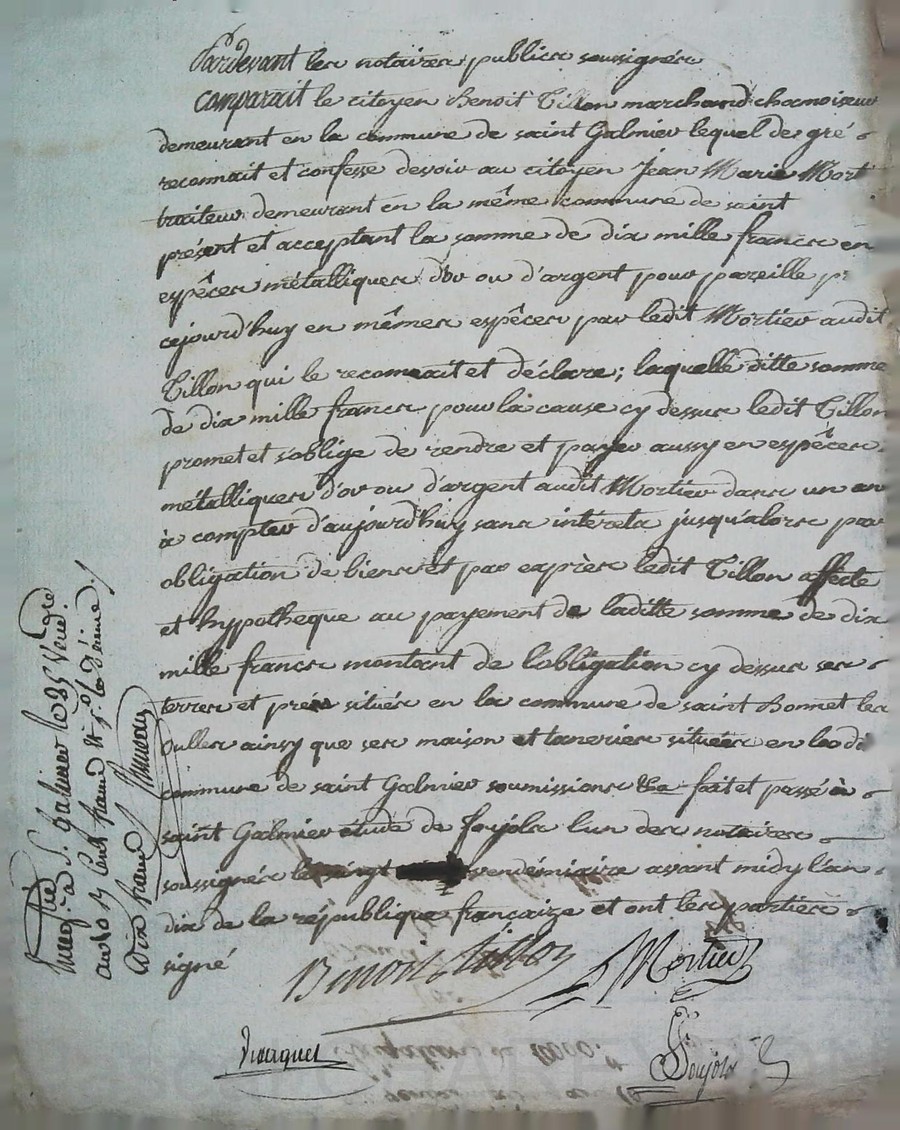 Pardevant les notaires publics soussignés
comparait le citoyen Benoit Tillon marchand chamoiseur
demeurant en la commune de saint Galmier lequel de gré
reconnait et confesse devoir au citoyen Jean Marie Mort
traiteur demeurant en la même commune de saint
présent et acceptant la somme de dix mille francs en
espêces métalliques d'or ou d'argent pour pareille
cejourd'huy en mêmes espêces par ledit Mortier audit
Tillon qui le reconnait et déclare; laquelle ditte somme
de dix mille francs pour la cause cy dessus ledit Tillon
promet et s'oblige de rendre et payer aussy en espêces
métalliques d'or ou d'argent audit Mortier dans un an
à compter d'aujourd'huy sans intérets jusqu'alors par
obligation de biens et par exprès ledit Tillon affecte
et hypotheque au payement de laditte somme de dix
mille francs montant de l'obligation cy dessus ses
terres et prés situés en la commune de saint Bonnet les
oulles ainsy que ses maison et taneries situées en la di
commune de saint Galmier soumissions &a fait et passé à
saint Galmier étude de foujols l'un des notaires
soussignés le vingt vendémiaire avant midy l'an
dix de la république française et ont les parties
signé
Benoit Tillon Mortier
Foujols
obligation de 10000.
S. Galmier le 25 Vend.re
an 10 francs
dix francs